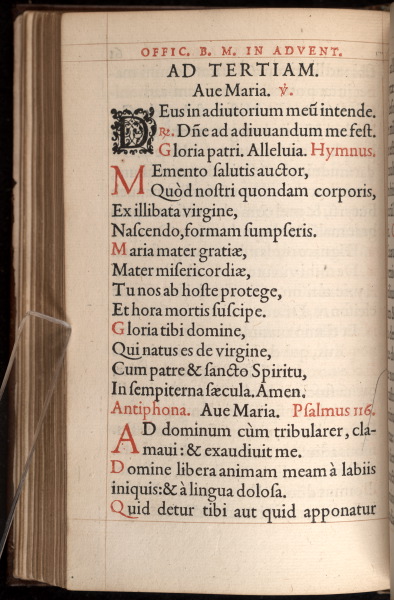 OFFIC. B. M. IN ADVENT.
AD TERTIAM.
Aue Maria. v̇.
Deus in adiutorium meũ intende.
℞. Dñe ad adiuuandum me fest.
Gloria patri. Alleluia. Hymnus.
Memento salutis auctor,
Quòd nostri quondam corporis,
Ex illibata virgine,
Nascendo, formam sumpseris.
Maria mater gratiæ,
Mater misericordiæ,
Tu nos ab hoste protege,
Et hora mortis suscipe.
Gloria tibi domine,
Qui natus es de virgine,
Cum patre & sancto Spiritu,
In sempiterna sæcula. Amen.
Antiphona. Aue Maria. Psalmus 116.
AD dominum cùm tribularer, cla-
maui: & exaudiuit me.
Domine libera animam meam à labiis
iniquis: & à lingua dolosa.
Quid detur tibi aut quid apponatur